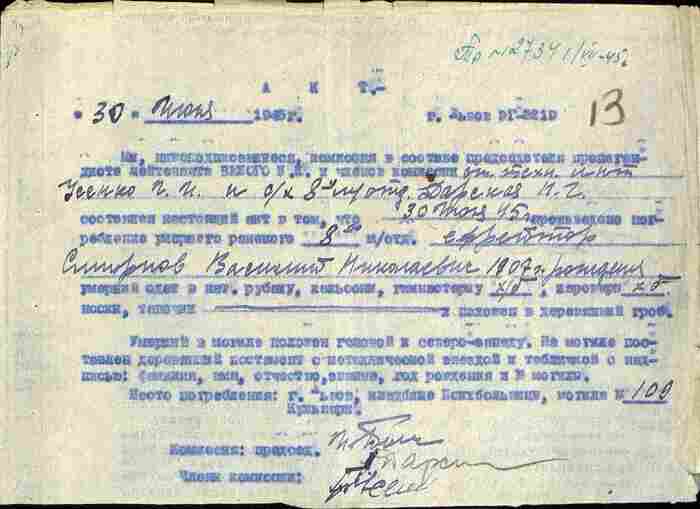 Пр №2734 1/VII-45г
А К Т.
" 30 " Июня 1945г. г. Львов ЭГ 2219
13
Мы, нижеподписавшиеся, комиссия в составе председателя пропаган-
диста лейтенанта и членов комиссии ст. техн. инт
Усенко П. И. и с/х 8го м/отд. Барская
составлен настоящий акт в том, что 30 Июня 45г произведено пог-
ребление умершего раненого 8го м/отд. ефрейтор
Смирнов Василий Николаевич 1907 г. рождения
умерший одет в нат. рубаху, кальсоны, гимнастерку х/б, шаровары х/б.
носки, тапочки и положен в деревянный гроб.
Умерший в могиле положен головой к северо-западу. На могиле пос-
тавлен деревянный постамент с металлической звездой и табличкой с над-
писью: фамилия, имя, отчество, звание, год рождения и № могилы.
Место погребления: г. Львов, кладбище Психбольницы, могила № 109
Кульпарк.
Комиссия: председ.
Члены комиссии: